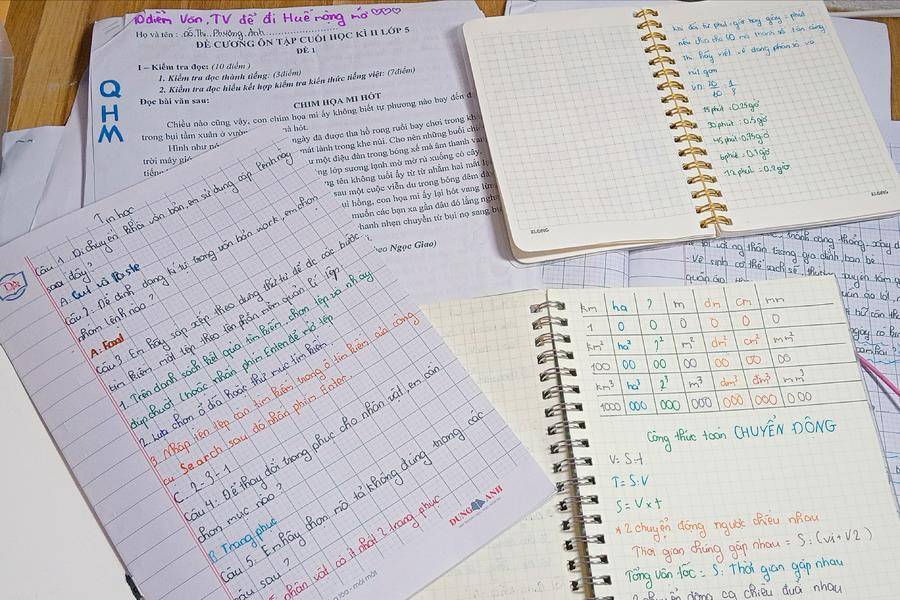 10 điểm Văn, TV để đi Huế nòng nó ♡♡♡
Họ và tên : Đỗ.Thị.Phương.Anh
ĐỀ CƯƠNG ÔN TẬP CUỐI HỌC KÌ II LỚP 5
ĐỀ 1
I – Kiểm tra đọc: (10 điểm )
1. Kiểm tra đọc thành tiếng: (3điểm)
2. Kiểm tra đọc hiểu kết hợp kiểm tra kiến thức tiếng việt: (7điểm)
Đọc bài văn sau:
CHIM HỌA MI HÓT
Chiều nào cũng vậy, con chim họa mi ấy không biết tự phương nào bay đến đ
trong bụi tầm xuân ở vườn mà hót.
Hình như nó ngày đã được tha hồ rong ruổi bay chơi trong kh
trời mây gió mát lành trong khe núi. Cho nên những buổi chi
tiếng một điệu đàn trong bóng xế mà âm thanh va
ng lớp sương lạnh mờ mờ rủ xuống cỏ cây.
ng tên không tuổi ấy từ từ nhắm hai mắt lạ
sau một cuộc viễn du trong bóng đêm dà
ừng hồng, con họa mi ấy lại hót vang lừn
muốn các bạn xa gần đâu đó lắng ngh
hanh nhẹn chuyển từ bụi nọ sang bụ
heo Ngọc Giao)
QHM
Tin học
Câu 1. Di chuyển khối văn bản, em sử dụng cặp lệnh nào
sau đây ?
A. Cut và Paste
Câu 2. Để định dạng kí tự trong văn bản word, em chọn
nhóm lệnh nào ?
A: Font
Câu 3 Em hãy sắp xếp theo đúng thứ tự để đc các bước
tìm kiếm một tệp theo tên phần mềm quản lí tệp.
1. Trên danh sách kết quả tìm kiếm, chọn tệp và nháy
đúp chuột (hoặc nhấn phím Enter để mở tệp
2. Lựa chọn ổ đĩa hoặc thư mục tìm kiếm.
3. Nhập tên tệp cần tìm kiếm trong ô tìm kiếm của công
cụ Search sau đó nhấn phím Enter.
C - 2 - 3 - 1
Câu 4: Để thay đổi trang phục cho nhân vật, em cần
chọn mục nào ?
B. Trang phục
Câu 5: Em hãy chọn mô tả không đúng trong các
câu sau ?
nhân vật có ít nhất 2 trang phục
DUNG ANH
khi đổi từ phút, giờ hay giây = phút
nếu chia cho 60 mà thành số tận cùng
thì hãy viết về dạng phân số và
rút gọn
15 phút = 0.25 giờ
30 phút = 0.5 giờ
45 phút = 0.75 giờ
6 phút = 0.1 giờ
12 phút = 0.2 giờ
KLONG
KLONG
km ha ? m dm cm mm
1 0 0 0 0 0 0
km² ha² ?² m² dm² cm² mm²
100 00 00 00 00 00 00
km³ ha³ ?³ m³ dm³ đm³ mm³
1000 000 000 000 000 000 000
Công thức toán CHUYỂN ĐỘNG
V = S - t
T = S : V
S = V × t
* 2 chuyển động ngược chiều nhau
Thời gian chúng gặp nhau = S : (V1 + V2 )
Tổng vận tốc = S : Thời gian gặp nhau
2 chuyển động cg chiều đuổi nhau